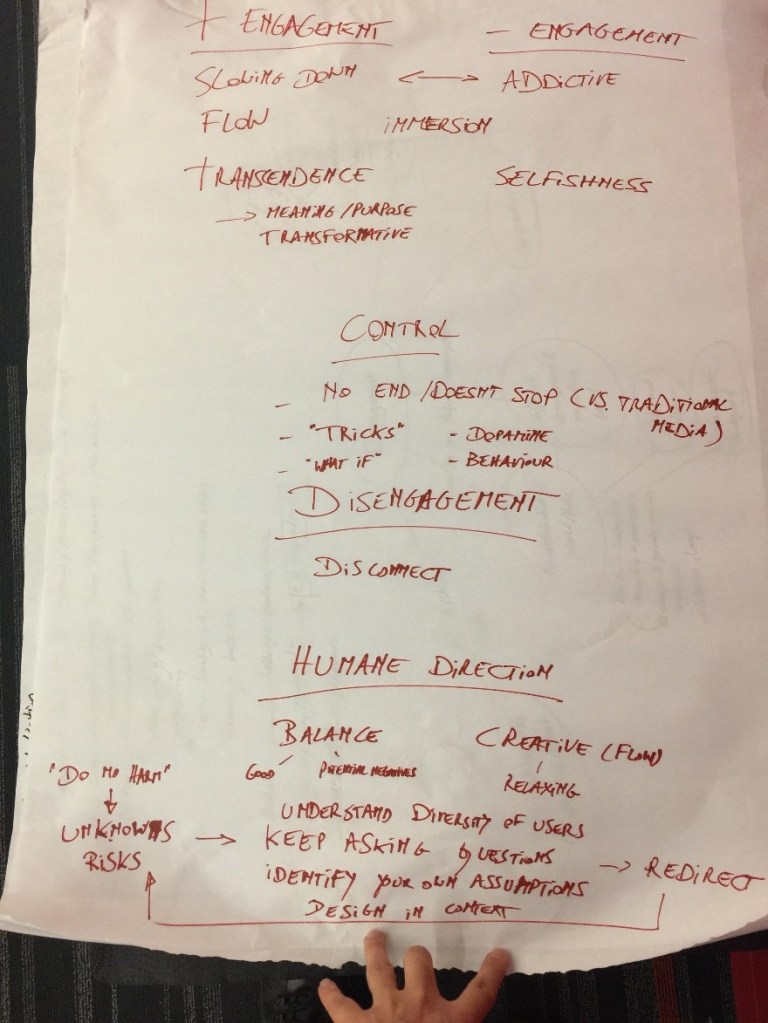 + ENGAGEMENT
- ENGAGEMENT
SLOWING DOWN ⟷ ADDICTIVE
FLOW
IMMERSION
TRANSCENDENCE
SELFISHNESS
→ MEANING/PURPOSE
TRANSFORMATIVE
CONTROL
- NO END/DOESNT STOP (VS. TRADITIONAL
MEDIA)
- "TRICKS" - DOPAMINE
- "WHAT IF" - BEHAVIOUR
DISENGAGEMENT
DISCONNECT
HUMANE DIRECTION
BALANCE
CREATIVE (FLOW)
GOOD
POTENTIAL NEGATIVES
RELAXING
"DO NO HARM"
↓
UNKNOWNS
RISKS
→
UNDERSTAND DIVERSITY OF USERS
KEEP ASKING QUESTIONS
IDENTIFY YOUR OWN ASSUMPTIONS
DESIGN IN CONTEXT
→ REDIRECT